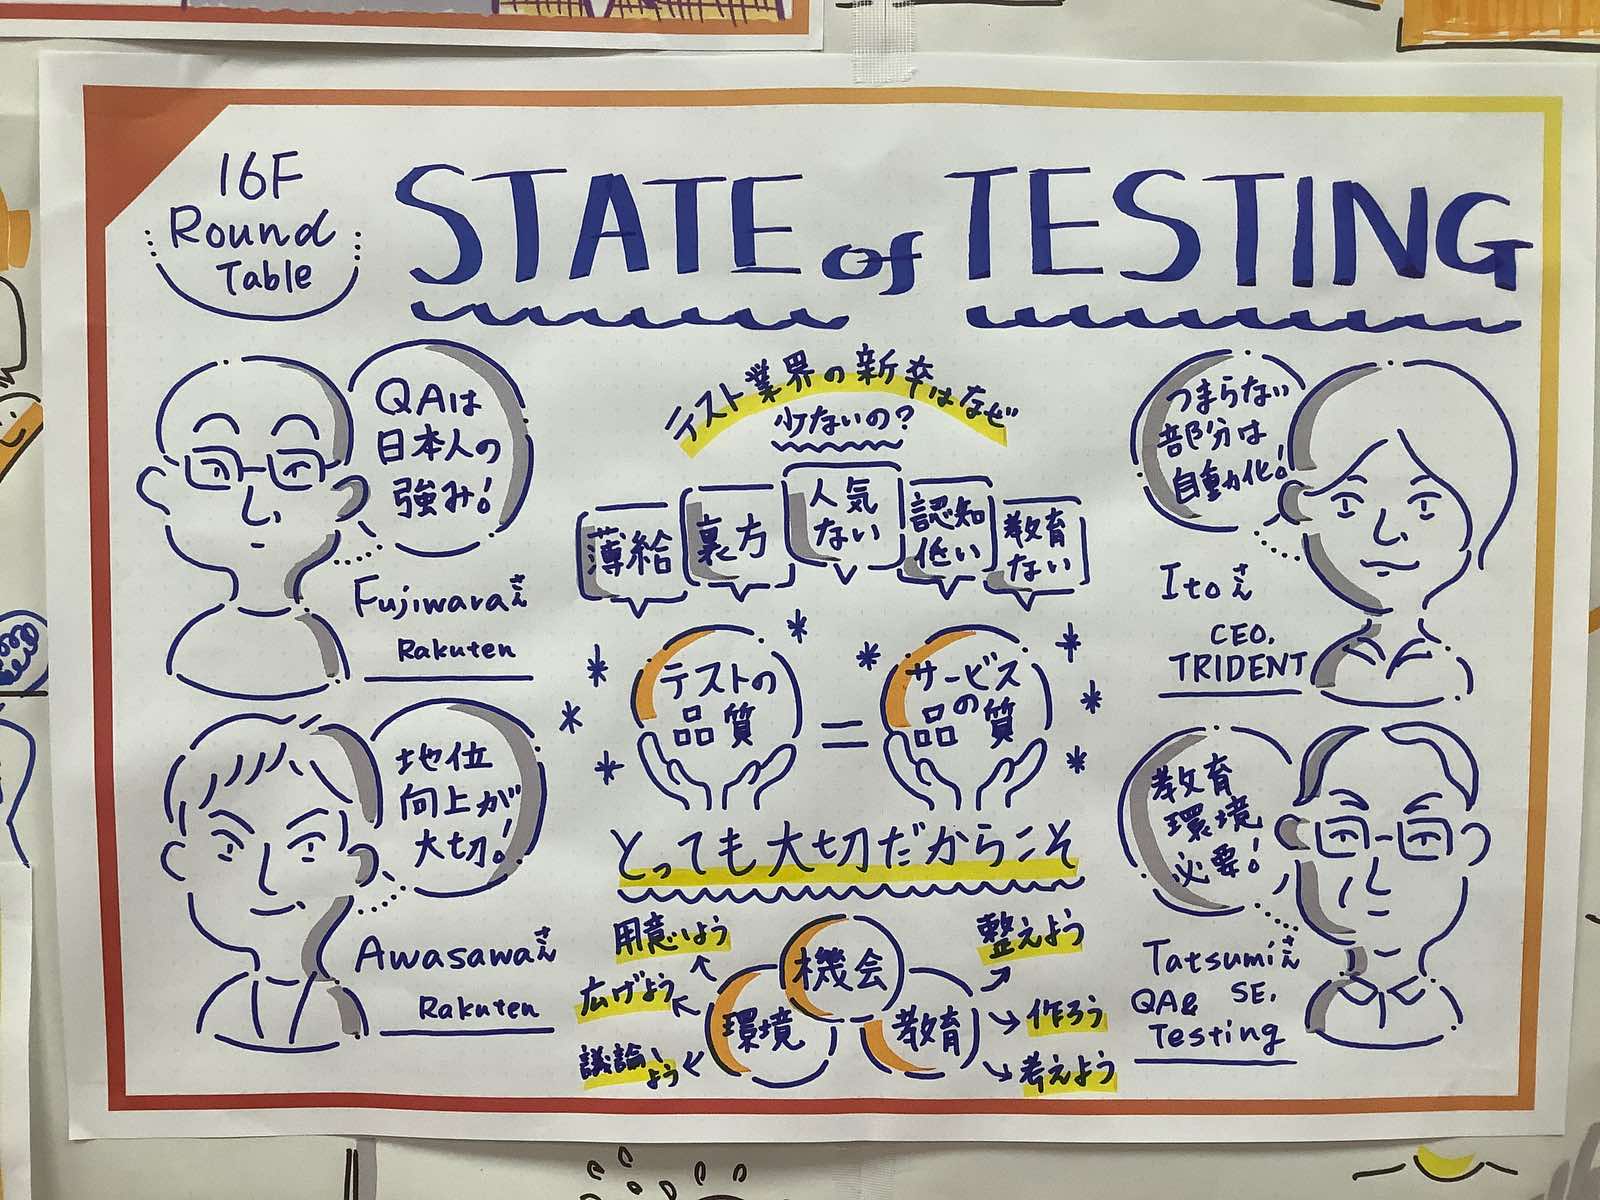 16F
Round
Table
STATE of TESTING
QAは
日本人の
強み!
Fujiwaraさん
Rakuten
地位
向上が
大切!
Awasawaさん
Rakuten
テスト業界の新卒はなぜ
少ないの?
薄給
裏方
人気
ない
認知
低い
教育
ない
テストの
品質
=
サービス
の
品質
とっても大切だからこそ
用意しよう
広げよう
議論しよう
機会
環境
教育
整えよう
作ろう
考えよう
つまらない
部分は
自動化!
Itoさん
CEO.
TRIDENT
教育
環境
必要!
Tatsumiさん
QA& SE.
Testing